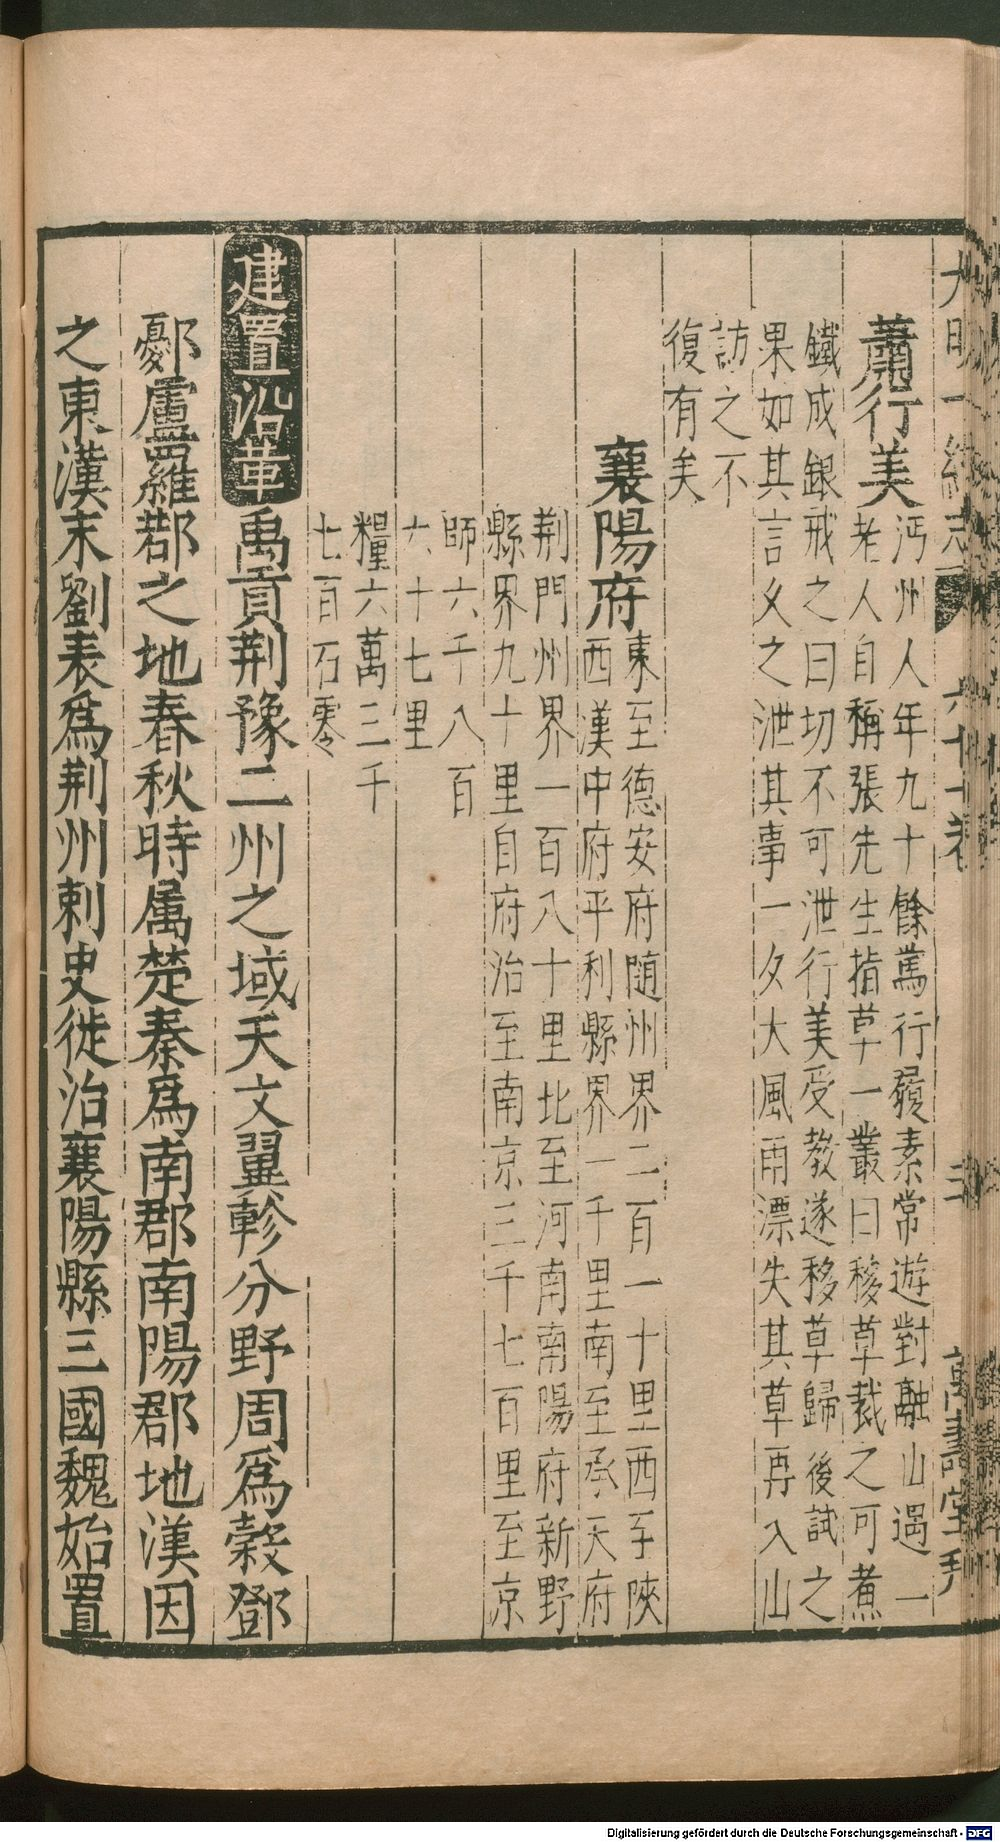 大明一統志 六十卷 三 萬壽堂刋
蕭行美 沔州人年九十餘篤行履素常遊對融山遇一
老人自稱張先生指草一叢曰移草栽之可煮
鐵成銀戒之曰切不可泄行美受教遂移草歸後試之
果如其言父之泄其事一夕大風雨漂失其草再入山
訪之不
復有矣
襄陽府 東至德安府隨州界二百一十里西至陝
西漢中府平利縣界一千里南至承天府
荆門州界一百八十里北至河南南陽府新野
縣界九十里自府治至南京三千七百里至京
師六千八百
六十七里
糧六萬三千
七百石零
建置沿革 禹貢荆豫二州之域天文翼軫分野周爲穀鄧
鄾盧羅鄀之地春秋時属楚秦爲南郡南陽郡地漢因
之東漢末劉表爲荆州刺史徙治襄陽縣三國魏始置
Digitalisierung gefördert durch die Deutsche Forschungsgemeinschaft - DFG